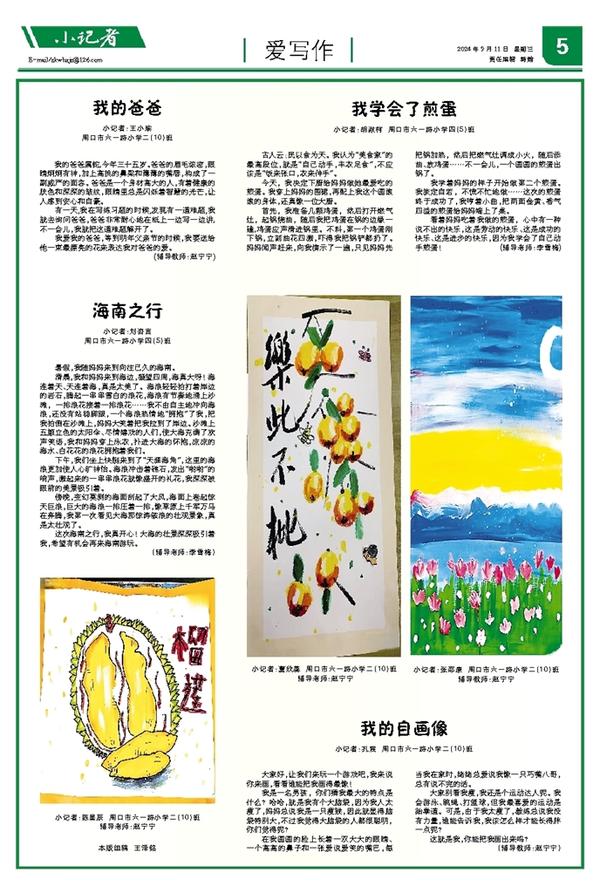 小记者
E-mail/zkwbxjz@126.com
爱写作
2024年9月11日 星期三
5
我的爸爸
小记者:王小瑜
周口市六一路小学二(10)班
我的爸爸属蛇,今年三十五岁。爸爸的眉毛浓密,眼
睛炯炯有神,加上高挑的鼻梁和薄薄的嘴唇,构成了一
副威严的面容。爸爸是一个身材高大的人,有着健康的
肤色和深深的皱纹,眼睛里总是闪烁着智慧的光芒,让
人感到安心和自豪。
有一天,我在写练习题的时候,发现有一道难题,我
就去询问爸爸,爸爸非常耐心地在纸上一边写一边讲,
不一会儿,我就把这道难题解开了。
我爱我的爸爸,等到明年父亲节的时候,我要送给
他一束最漂亮的花来表达我对爸爸的爱。
(辅导老师:赵宁宁)
我学会了煎蛋
周口市六一路小学四(5)班
古人云:民以食为天。我认为“美食家”的
最高段位,就是“自己动手,丰衣足食”,不应
该是“饭来张口,衣来伸手”。
今天,我决定下厨给妈妈做她最爱吃的
煎蛋。我穿上妈妈的围裙,再配上我这个圆滚
滚的身体,还真像一位大厨。
首先,我准备几颗鸡蛋,然后打开燃气
灶,起锅烧油,随后我把鸡蛋在锅的边缘一
磕,鸡蛋应声滑进锅里。不料,第一个鸡蛋刚
下锅,立刻油花四溅,吓得我把锅铲都扔了。
妈妈闻声赶来,向我演示了一遍,只见妈妈先
把锅加热,然后把燃气灶调成小火,随后添
油、放鸡蛋……不一会儿,一个圆圆的煎蛋出
锅了。
我学着妈妈的样子开始做第二个煎蛋。
我淡定自若,不慌不忙地做……这次的煎蛋
终于成功了,我哼着小曲,把两面金黄、香气
四溢的煎蛋给妈妈端上了桌。
看着妈妈吃着我做的煎蛋,心中有一种
说不出的快乐,这是劳动的快乐、这是成功的
快乐、这是进步的快乐,因为我学会了自己动
手煎蛋!
(辅导老师:李雪梅)
海南之行
周口市六一路小学四(5)班
暑假,我随妈妈来到向往已久的海南。
清晨,我和妈妈来到海边,眺望四周,海真大呀!海
连着天、天连着海,真是太美了。海浪轻轻拍打着岸边
的岩石,腾起一串串雪白的浪花,海浪有节奏地涌上沙
滩,一排浪花接着一排浪花……我不由自主地冲向海
浪,还没有站稳脚跟,一个海浪热情地“拥抱”了我,把
我拍倒在沙滩上,妈妈大笑着把我拉到了岸边。沙滩上
五颜立色的太阳伞、尽情嬉戏的人们,使大海充满了欢
声笑语,我和妈妈穿上泳衣,扑进大海的怀抱,凉凉的
海水、白花花的浪花拥抱着我们。
下午,我们坐上快艇来到了“天涯海角”,这里的海
浪更加使人心旷神怡。海浪冲击着礁石,发出“啪啪”的
响声,激起来的一串串浪花就像盛开的礼花,我深深被
眼前的美景吸引着。
傍晚,变幻莫测的海面刮起了大风,海面上卷起惊
天巨浪,巨大的海浪一排压着一排,像草原上千军万马
在奔腾,我第一次看见大海那惊涛骇浪的壮观景象,真
是太壮观了。
这次海南之行,我真开心!大海的壮景深深吸引着
我,希望有机会再来海南游玩。
(辅导老师:李雪梅)
樂此不枇
榴莲
周口市六一路小学二(10)班
辅导教师:赵宁宁
周口市六一路小学二(10)班
辅导教师:赵宁宁
周口市六一路小学二(10)班
辅导老师:赵宁宁
本版组稿 王泽铭
我的自画像
周口市六一路小学二(10)班
大家好,让我们来玩一个游戏吧,我来说
你来画,看看谁能把我画得最像!
我是一名男孩,你们猜我最大的特点是
什么?哈哈,就是我有个大脑袋,因为我人太
瘦了,妈妈总说我是一只瘦猴,因此就显得脑
袋特别大,不过我觉得大脑袋的人都很聪明,
你们觉得呢?
在我圆圆的脸上长着一双大大的眼睛、
一个高高的鼻子和一张爱说爱笑的嘴巴,每
当我在家时,姥姥总爱说我像一只巧嘴八哥,
总有说不完的话。
大家别看我瘦,我还是个运动达人呢。我
会游泳、跳绳、打篮球,但我最喜爱的运动是
跆拳道。可是,由于我太瘦了,教练总说我没
有力量,谁能告诉我,我该怎么样才能长得胖
一点呢?
这就是我,你能把我画出来吗?
(辅导教师:赵宁宁)